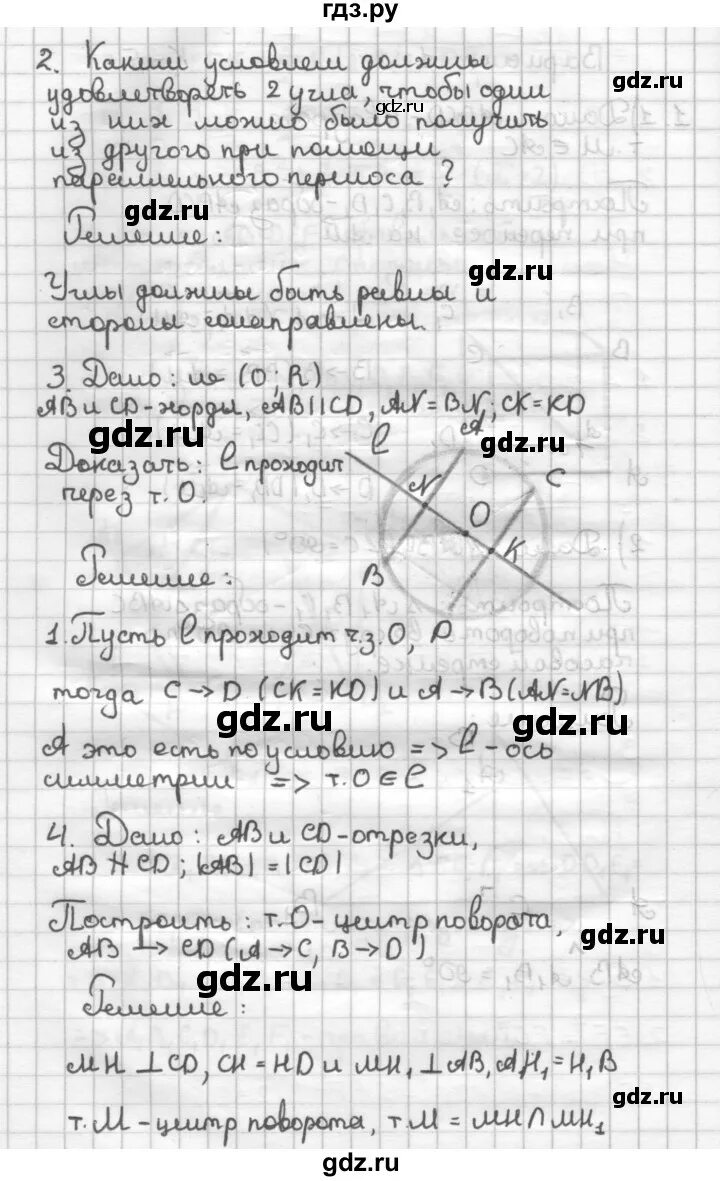 гдз.ру
2. Каким условием должны
gdz.ru
удовлетворять 2 угла, чтобы один
gdz.ru
из них можно было получить
из другого при помощи
параллельного переноса ?
gdz.ru
Решение:
gdz.ru
Углы должны быть равны и
стороны сонаправлены.
3. Дано: (O; R)
AB и CD - хорды, AB || CD, AN = BN, CK = KD
gdz.ru
gdz.ru
Доказать: l проходит
через т. O.
l
A
N
C
O
K
B
Решение:
gdz.ru
1. Пусть l проходит ч.з. O,
тогда C → D (CK = KD) и A → B (AN = NB)
gdz.ru
gdz.ru
А это есть по условию => l - ось
симметрии => т. O ∈ l
4. Дано: AB и CD - отрезки,
AB ∦ CD ; |AB| = |CD|
Построить: т. O - центр поворота,
gdz.ru
AB → CD (A → C, B → D)
gdz.ru
Решение:
MH ⊥ CD, CH = HD и MH₁ ⊥ AB, AH₁ = H₁B
gdz.ru
т. M - центр поворота, т. M = MH ∩ MH₁
gdz.ru